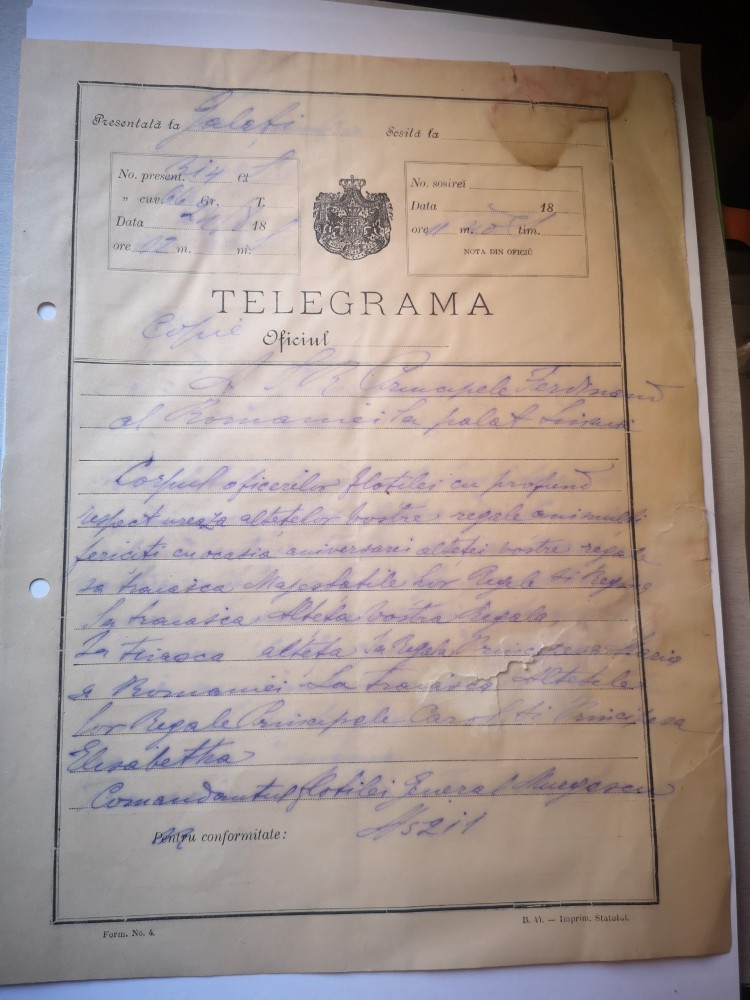 Presentată la Galați
Sosită la
No. present. 314 et
" cuv. 66 Gr. T.
Data 24/8 18
ore 12 m. m.
No. sosirei
Data 18
ore 11 m. tim.
NOTA DIN OFICIŬ
TELEGRAMA
Copie Oficiul
A S R Principele Ferdinand
al Romaniei la palat
Corpul oficerilor flotilei cu profund
respect ureaza altetelor vostre regale ani multi
fericiti cu ocasia aniversarei altetei vostre regale
sa traiasca Majestatile Lor Regele si Regina
Sa traiasca Alteta Vostra Regala,
Sa Traiasca alteta Sa Regala Principesa Maria
a Romaniei Sa traiasca Altetele
Lor Regale Principele Carol si Principesa
Elisabetha
Comandantul flotilei General Murgescu
Pentru conformitate:
Form. No. 4.
B. 41. — Imprim. Statului.